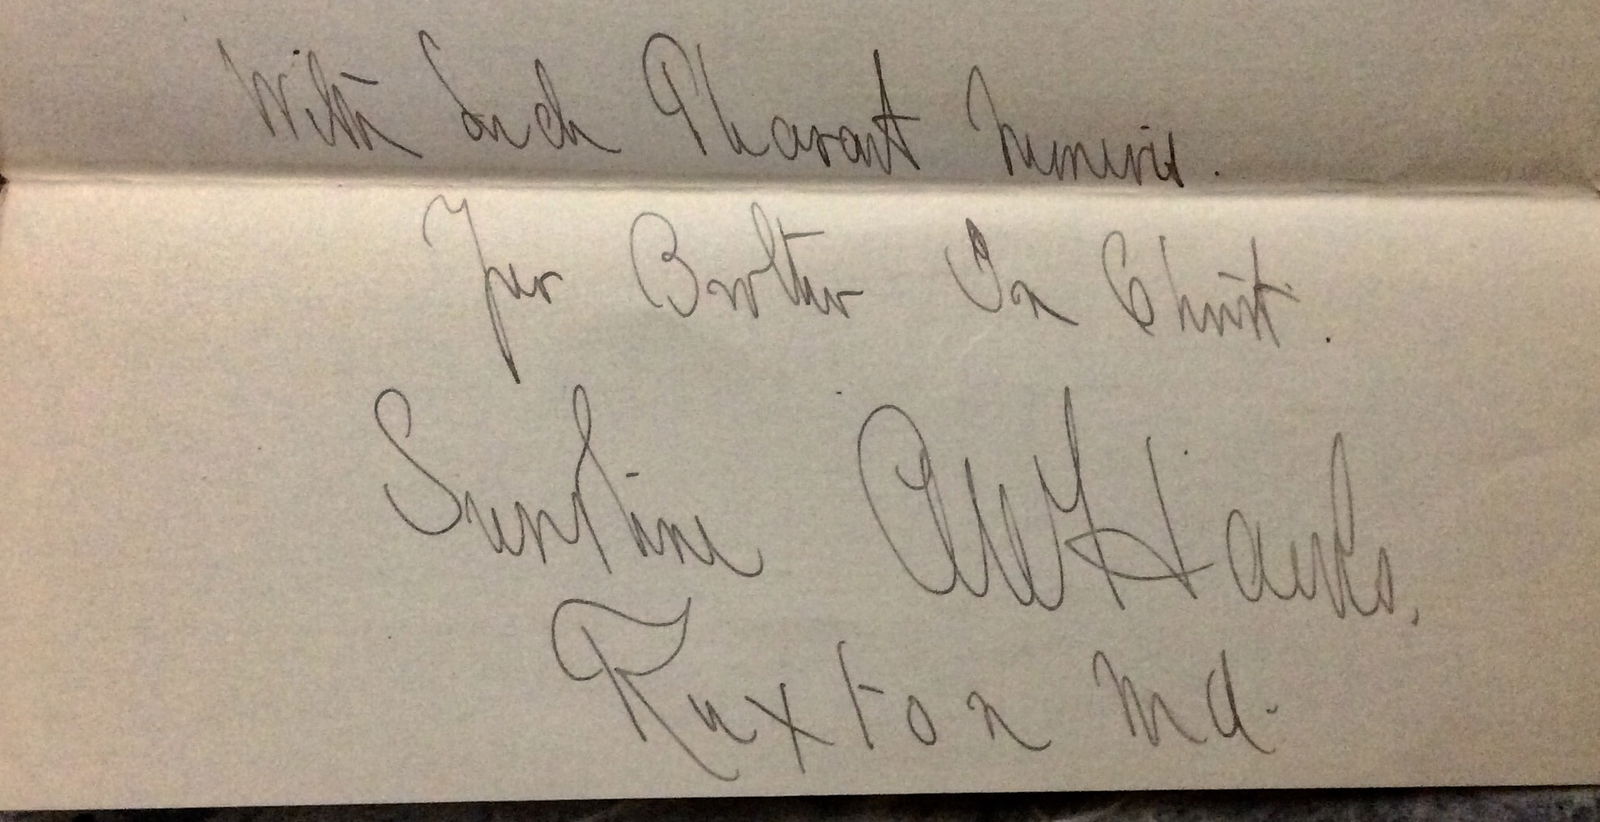 With Such Pleasant Memories.
Your Brother In Christ.
Sunshine A W Hawks.
Ruxton Md.